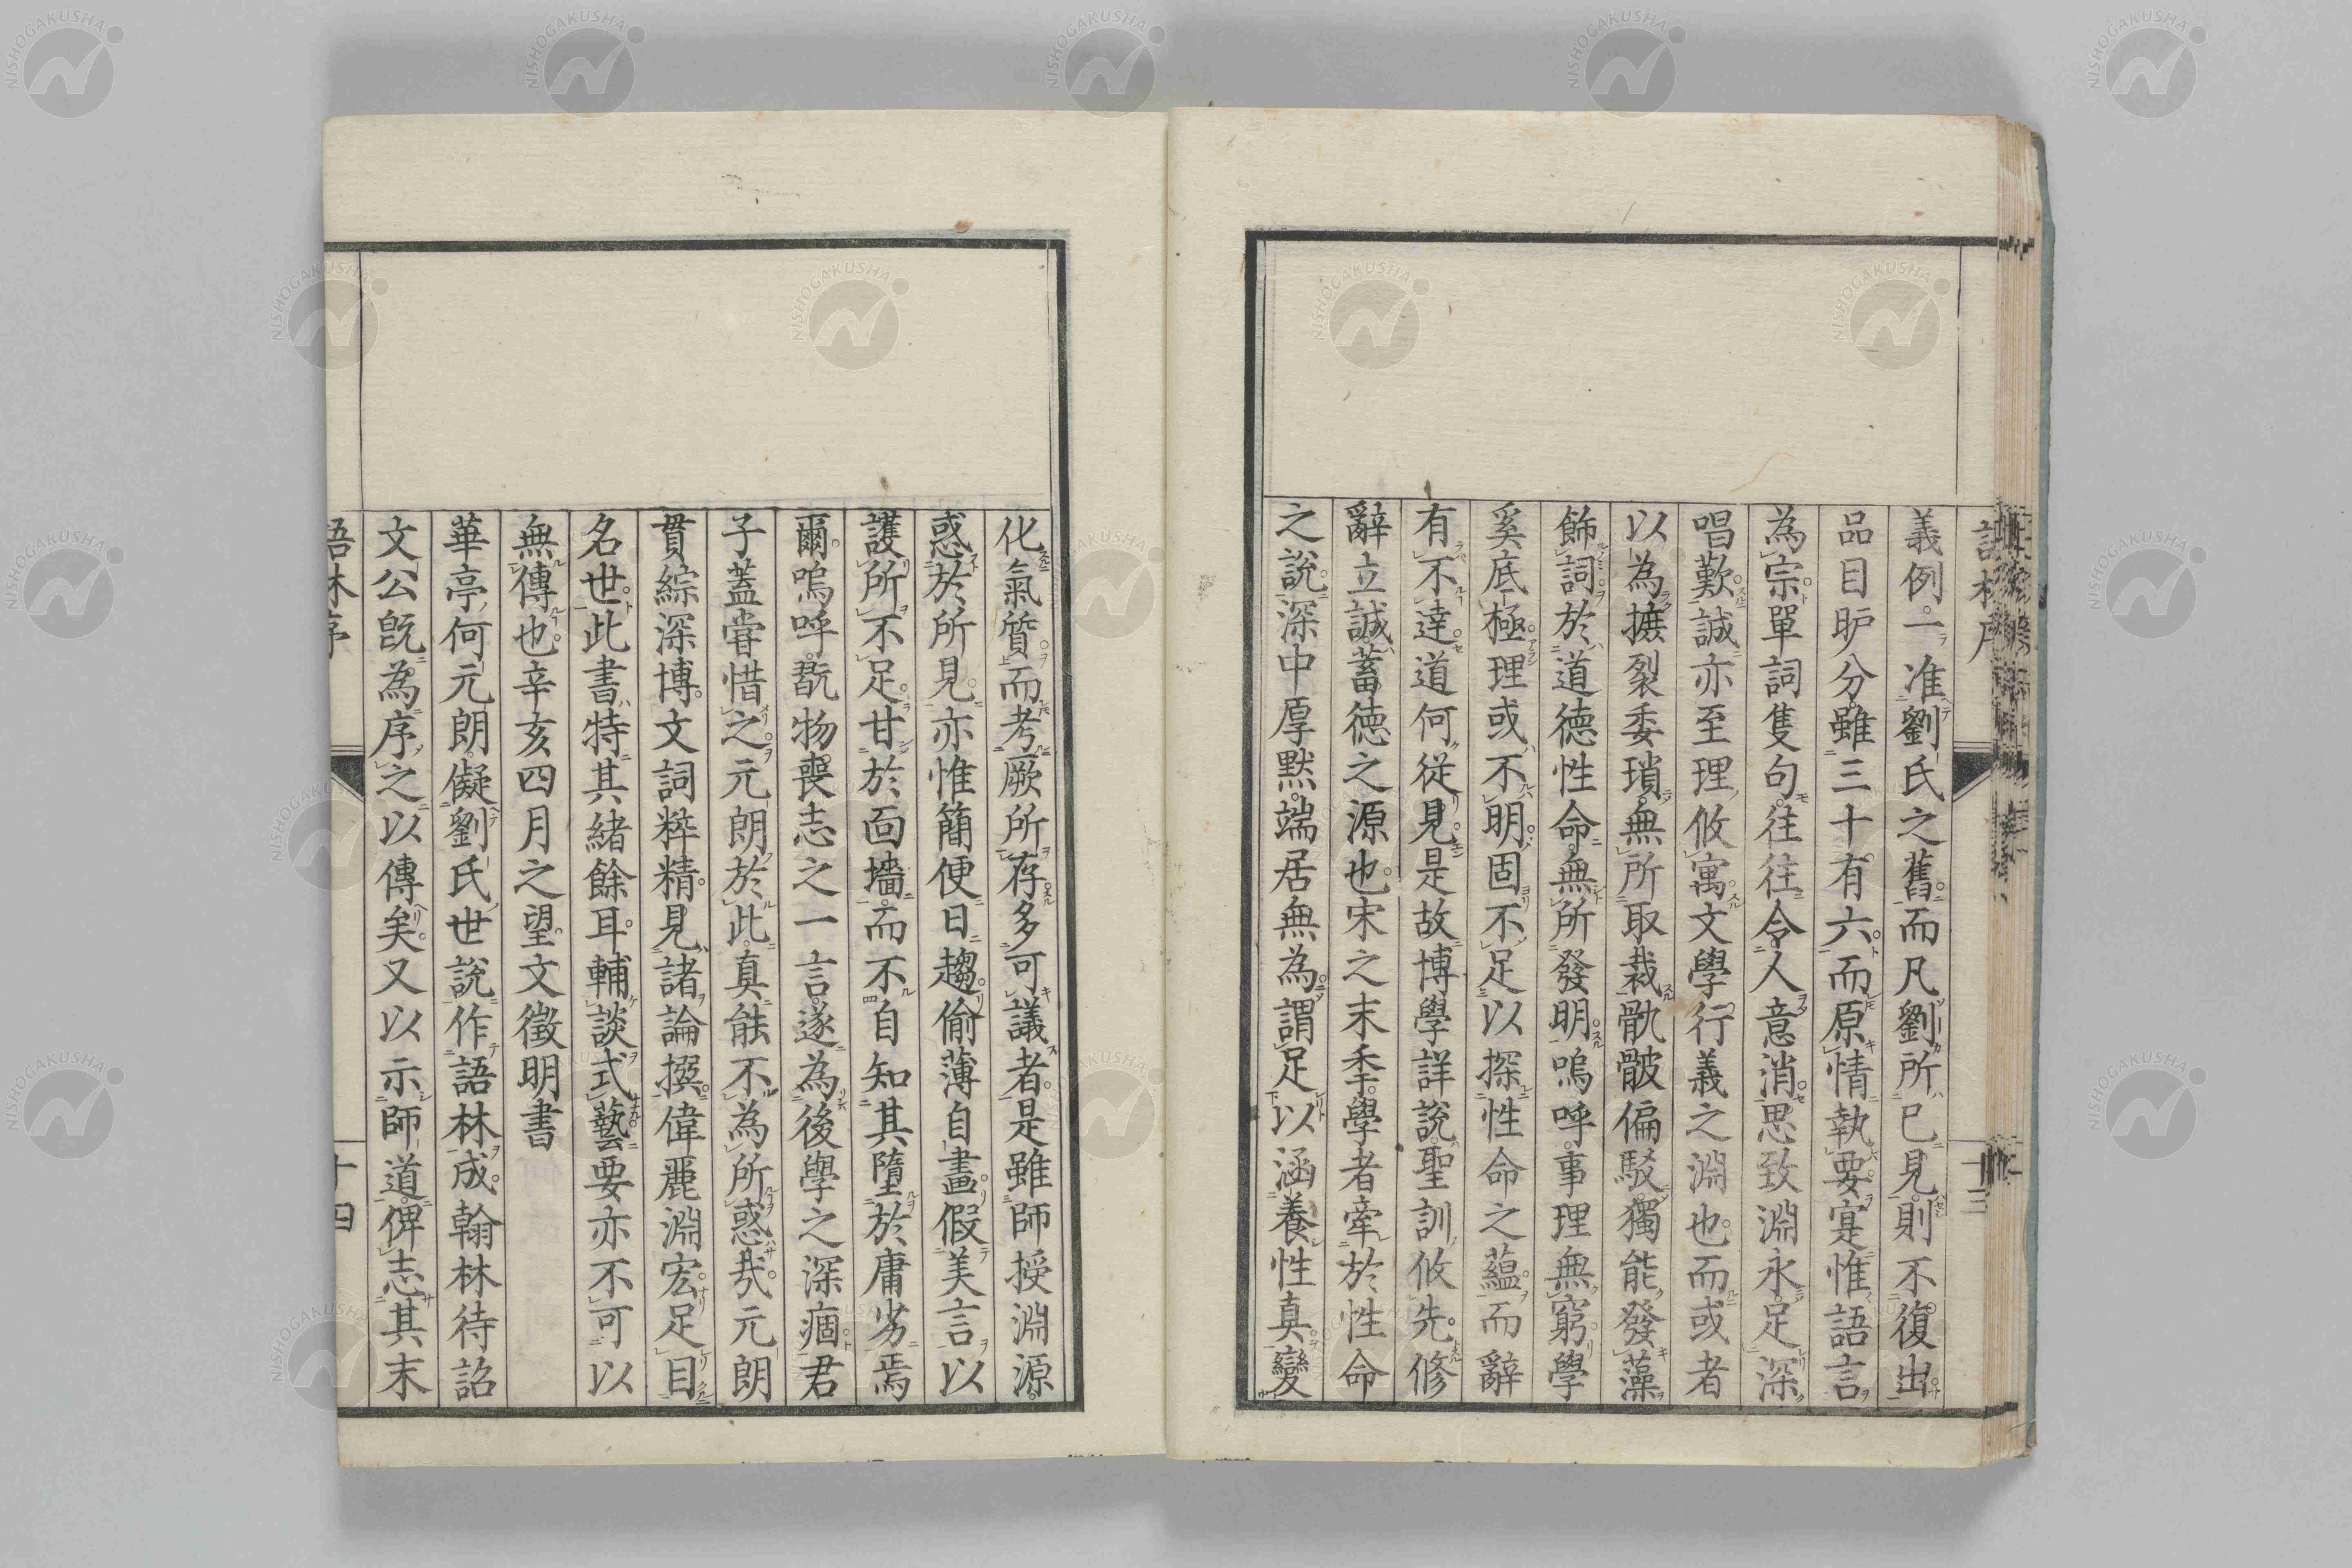 義例一准劉氏之舊而凡劉所已見則不復出
品目昈分雖三十有六而原情執要寔惟語言
為宗單詞隻句往往令人意消思致淵永足深
唱歎誠亦至理攸寓文學行義之淵也而或者
以為摭裂委瑣無所取裁骩骳偏駁獨能發藻
飾詞於道德性命無所發明嗚呼事理無窮學
奚底極理或不明固不足以探性命之蘊而辭
有不達道何從見是故博學詳說聖訓攸先修
辭立誠蓄德之源也宋之末季學者牽於性命
之說深中厚默端居無為謂足以涵養性真變
化氣質而考厥所存多可議者是雖師授淵源
惑於所見亦惟簡便日趨偷薄自畫假美言以
護所不足甘於面墻而不自知其墮於庸劣焉
爾嗚呼翫物喪志之一言遂為後學之深痼君
子蓋嘗惜之元朗於此真能不為所惑哉元朗
貫綜深博文詞粹精見諸論撰偉麗淵宏足目
名世此書特其緒餘耳輔談式藝要亦不可以
無傳也辛亥四月之望文徵明書
華亭何元朗儗劉氏世說作語林成翰林待詔
文公既為序之以傳矣又以示師道俾志其末
語林序
十四
十三
NISHOGAKUSHA